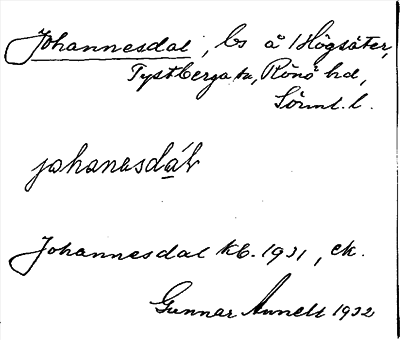 Johannesdal, ls å 1 Högsäter,
Tystberga sn, Rönö hd,
Sörml. l.
johanasdáɫ
Johannesdal kb. 1931, ek.
Gunnar Annell 1932